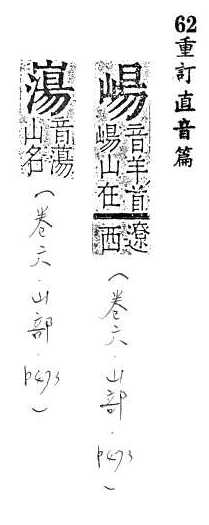 62重訂直音篇
崵音羊首崵山在遼西(卷六.山部.p473)
音蕩山名(卷六.山部.p473)